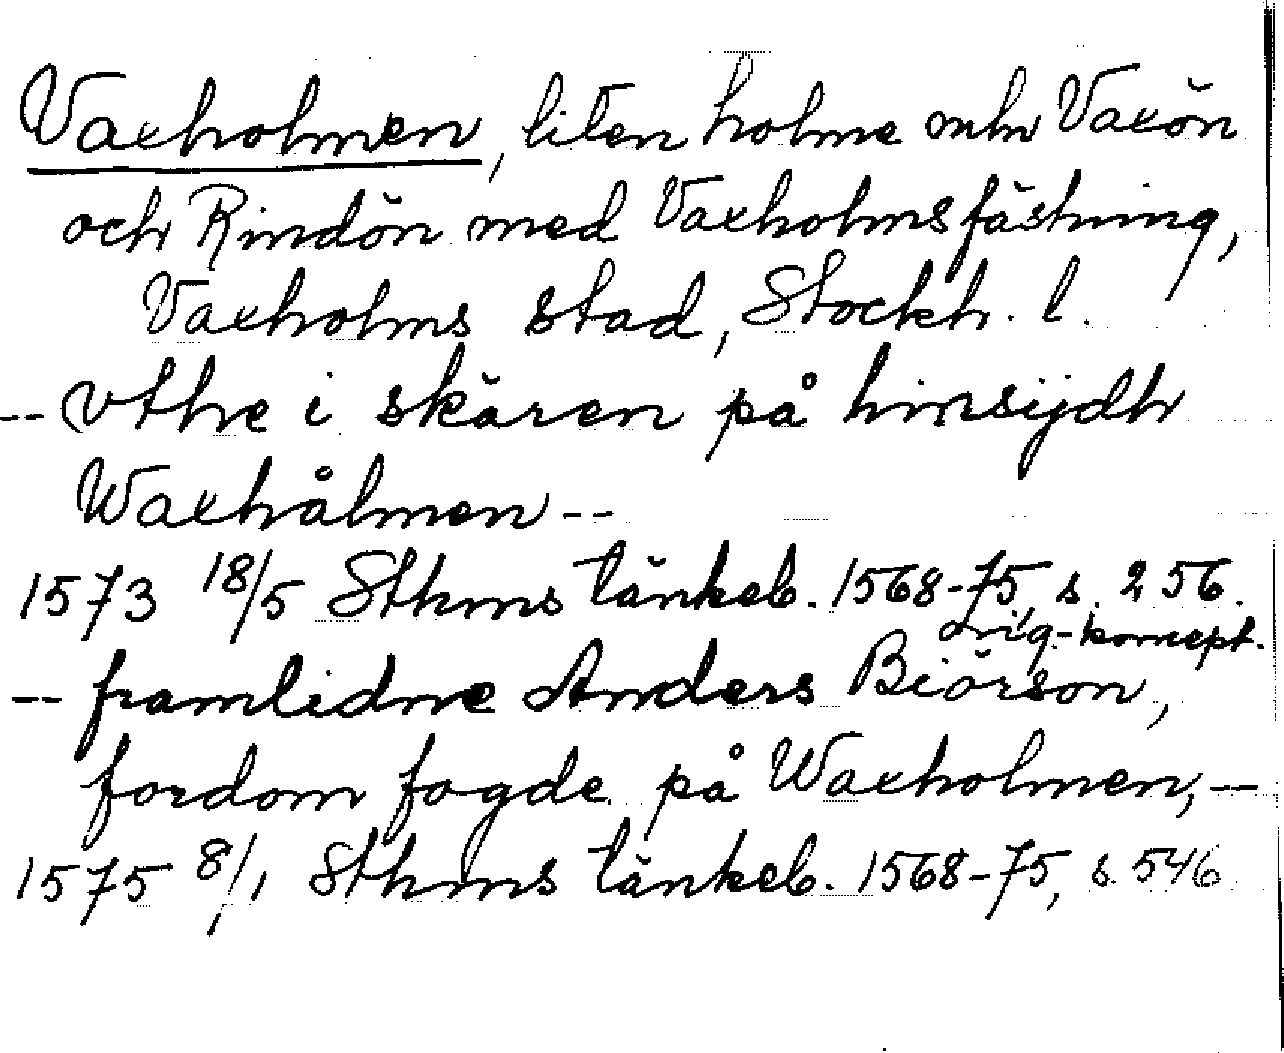 Vaxholmen, liten holme mln Vaxön
och Rindön med Vaxholms fästning,
Vaxholms stad, Stockh. l.
-- vthe i skären på hinsijdh
Waxhålmen --
1573 18/5 Sthms tänkeb. 1568-75, s. 256.
orig.-koncept.
-- framlidne Anders Biörson,
fordom fogde på Waxholmen, --
1575 8/1 Sthms tänkeb. 1568-75, s. 546